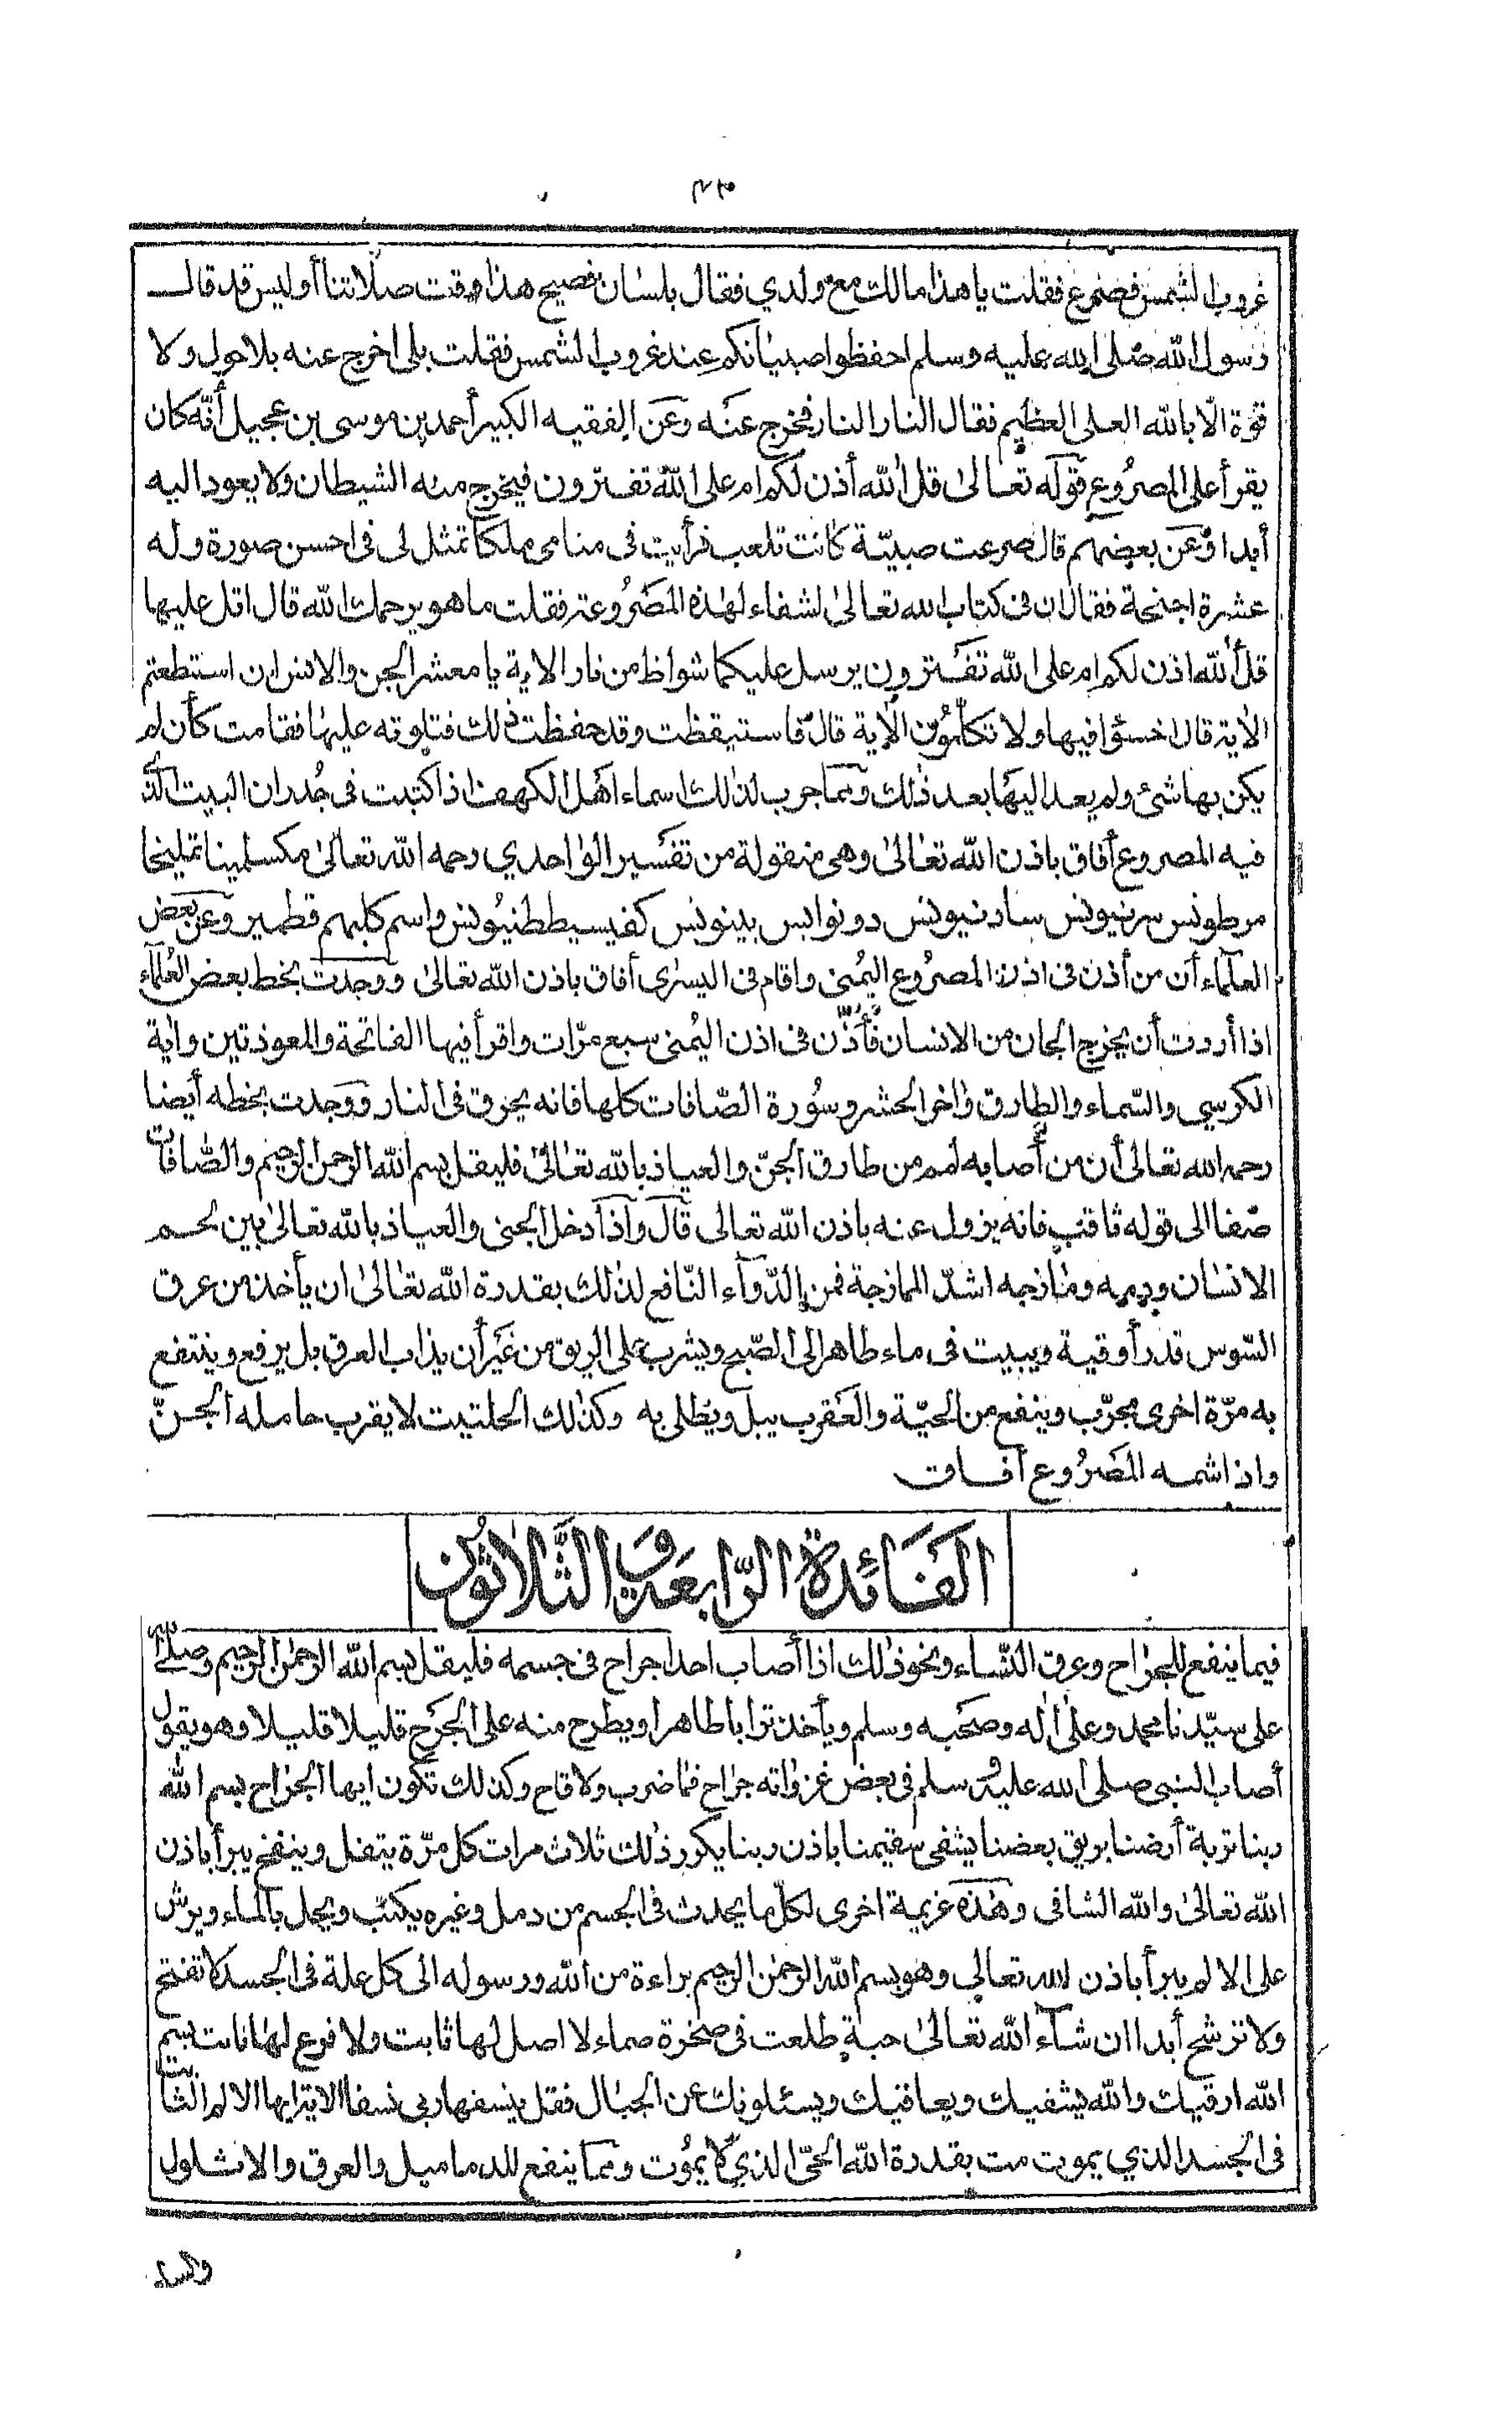 غروب الشمس فصرع فقلت يا هذا مالك مع ولدي فقال بلسان فصيح هذا وقت صلاتنا أوليس قد قال
رسول الله صلى الله عليه وسلم احفظوا صبيانكم عند غروب الشمس فقلت بلى اخرج عنه بلا حول ولا
قوة الا بالله العلى العظيم فقال النار النار فخرج عنه وعن الفقيه الكبير أحمد بن موسى بن عجيل أنه كان
يقرأ على المصروع قوله تعالى قل الله أذن لكم ام على الله تفترون فيخرج منه الشيطان ولا يعود اليه
أبدا وعن بعضهم قال صرعت صبية كانت تلعب فرأيت فى منامى ملكا تمثل لى فى احسن صورة وله
عشرة اجنحة فقال ان فى كتاب الله تعالى لشفاء لهذه المصروعة فقلت ما هو يرحمك الله قال اتل عليها
قل ألله اذن لكم ام على الله تفترون يرسل عليكما شواظ من نار الاية يا معشر الجن والانس ان استطعتم
الاية قال اخسؤا فيها ولا تكلمون الاية قال فاستيقظت وقد حفظت ذلك فتلوته عليها فقامت كأن لم
يكن بها شئ ولم يعد اليها بعد ذلك ومما جرب لذلك اسماء اهل الكهف اذا كتبت فى جدران البيت الذى
فيه المصروع أفاق باذن الله تعالى وهى منقولة من تفسير الواحدي رحمه الله تعالى مكسلمينا تمليخا
مرطونس سادنيونس دونوانس بينونس واسم كلبهم قطمير وعن بعض
العلماء أن من أذن فى اذن المصروع اليمنى واقام فى اليسرى أفاق باذن الله تعالى ووجدت بخط بعض العلماء
اذا أردت أن يخرج الجان من الانسان فأذن فى اذن اليمنى سبع مرات واقرأ فيها الفاتحة والمعوذتين واية
الكرسي والسماء والطارق واخر الحشر وسورة الصافات كلها فانه يحرق فى النار ووجدت بخطه أيضا
رحمه الله تعالى أن من أصابه لمم من طارق الجن والعياذ بالله تعالى فليقل بسم الله الرحمن الرحيم والصافات
صفا الى قوله ثاقب فانه يزول عنه باذن الله تعالى قال واذا دخل الجنى والعياذ بالله تعالى بين لحم
الانسان ودمه ومازجه اشد الممازجة فمن الدواء النافع لذلك بقدرة الله تعالى ان يأخذ من عرق
السوس قدر أوقية ويبيت فى ماء طاهر الى الصبح ويشرب على الريق من غير أن يذاب العرق بل يرفع وينتفع
به مرة اخرى مجرب وينفع من الحية والعقرب يبل ويطلى به وكذلك الحلتيت لا يقرب حامله الجن
واذا شمه المصروع آفاق
الفائدة الرابعة والثلاثون
فيما ينفع للجراح وعرق النساء ونحو ذلك اذا أصاب احدا جراح فى جسمه فليقل بسم الله الرحمن الرحيم وصلى الله
على سيدنا محمد وعلى اله وصحبه وسلم ويأخذ ترابا طاهرا ويطرح منه على الجرح قليلا قليلا وهو يقول
أصاب النبى صلى الله عليه وسلم فى بعض غزواته جراح فما ضرب ولا قاح وكذلك تكون ايها الجراح بسم الله
ربنا تربة أرضنا بريق بعضنا يشفى سقيمنا باذن ربنا يكرر ذلك ثلاث مرات كل مرة يتفل وينفخ يبرأ باذن
الله تعالى والله الشافى وهذه عزيمة اخرى لكل ما يحدث فى الجسم من دمل وغيره يكتب ويحل بالماء ويرش
على الالم يبرأ باذن الله تعالى وهو بسم الله الرحمن الرحيم براءة من الله ورسوله الى كل علة فى الجسد لا تفتح
ولا ترشح أبدا ان شاء الله تعالى حبة طلعت فى صخرة صماء لا اصل لها ثابت ولا فرع لها نابت بسم
الله ارقيك والله يشفيك ويعافيك ويسئلونك عن الجبال فقل ينسفها ربى نسفا الاية ايها الالم الثابت
فى الجسد الذي يموت مت بقدرة الله الحى الذي لا يموت ومما ينفع للدماميل والعرق والاثلول